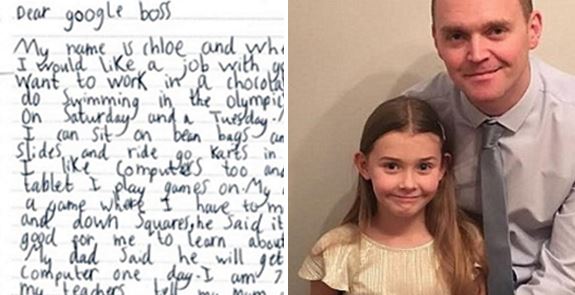 Dear google boss
My name is chloe and whe
I would like a job with go
want to work in a chocola
do swimming in the olympic
On Saturday and a Tuesday.
I can sit on bean bags an
slides and ride go karts in
I like computers too and
tablet I play games on.My
a game where I have to m
and down Squares,he said it
good for me to learn about
My dad said he will get
computer one day.I am 7
my teachers tell my mum